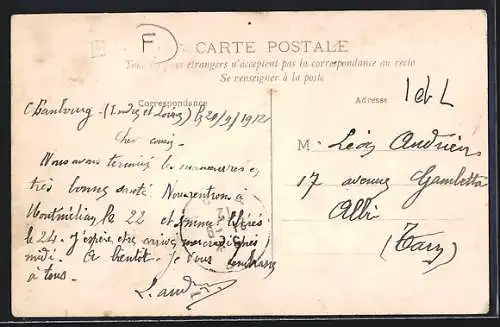 F
CARTE POSTALE
Tous les pays étrangers n'acceptent pas la correspondance au recto
Se renseigner à la poste
Correspondance
Adresse
1 et L
(Indre et Loire) le 20/9/1912
Cher cousin
Nous avons terminé les manœuvres en
très bonne santé Nous rentrons à
Montmélian le 22 et sommes libérés
le 24. J'espère être
midi. A bientôt. Je vous embrasse
à tous.
L. Andr
M. Léon Andrieu
17 avenue Gambetta
Albi
(Tarn)